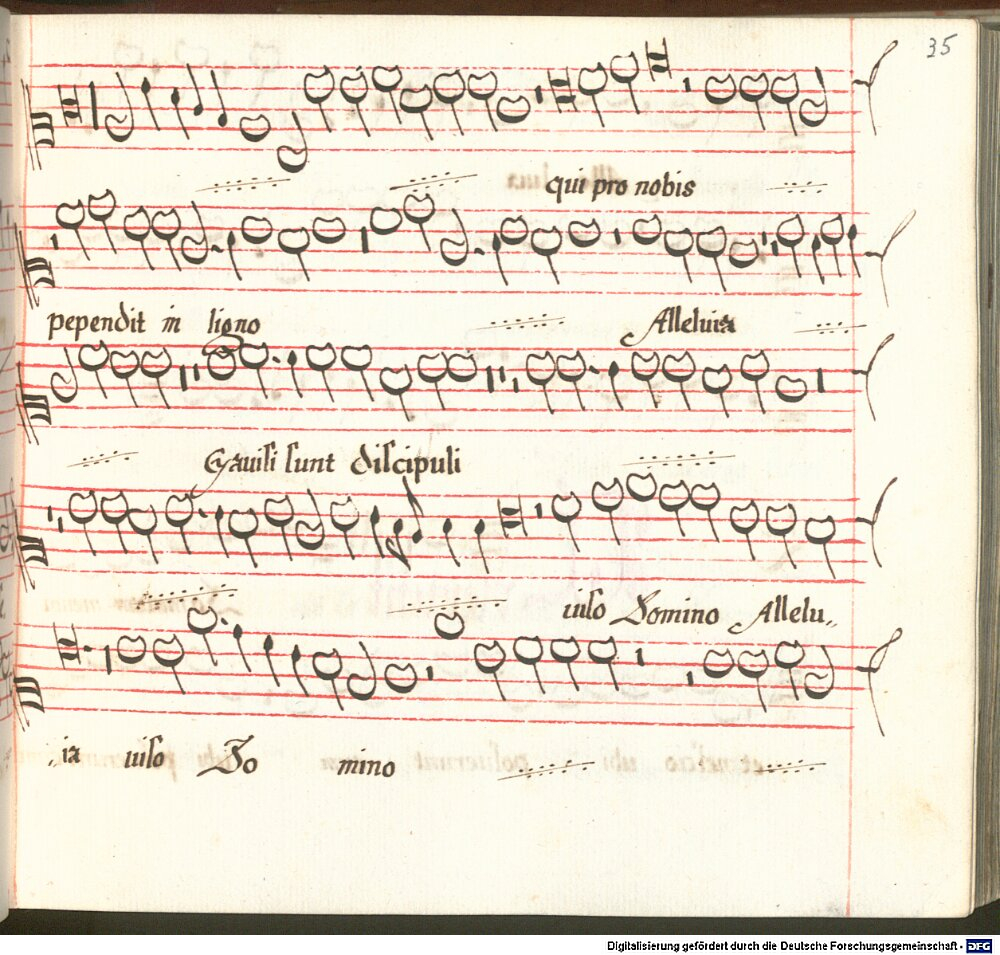 35
qui pro nobis
pependit in ligno Alleluia
Gavisi sunt discipuli
viso Domino Allelu,,
,,ia viso Do mino
Digitalisierung gefördert durch die Deutsche Forschungsgemeinschaft - DFG